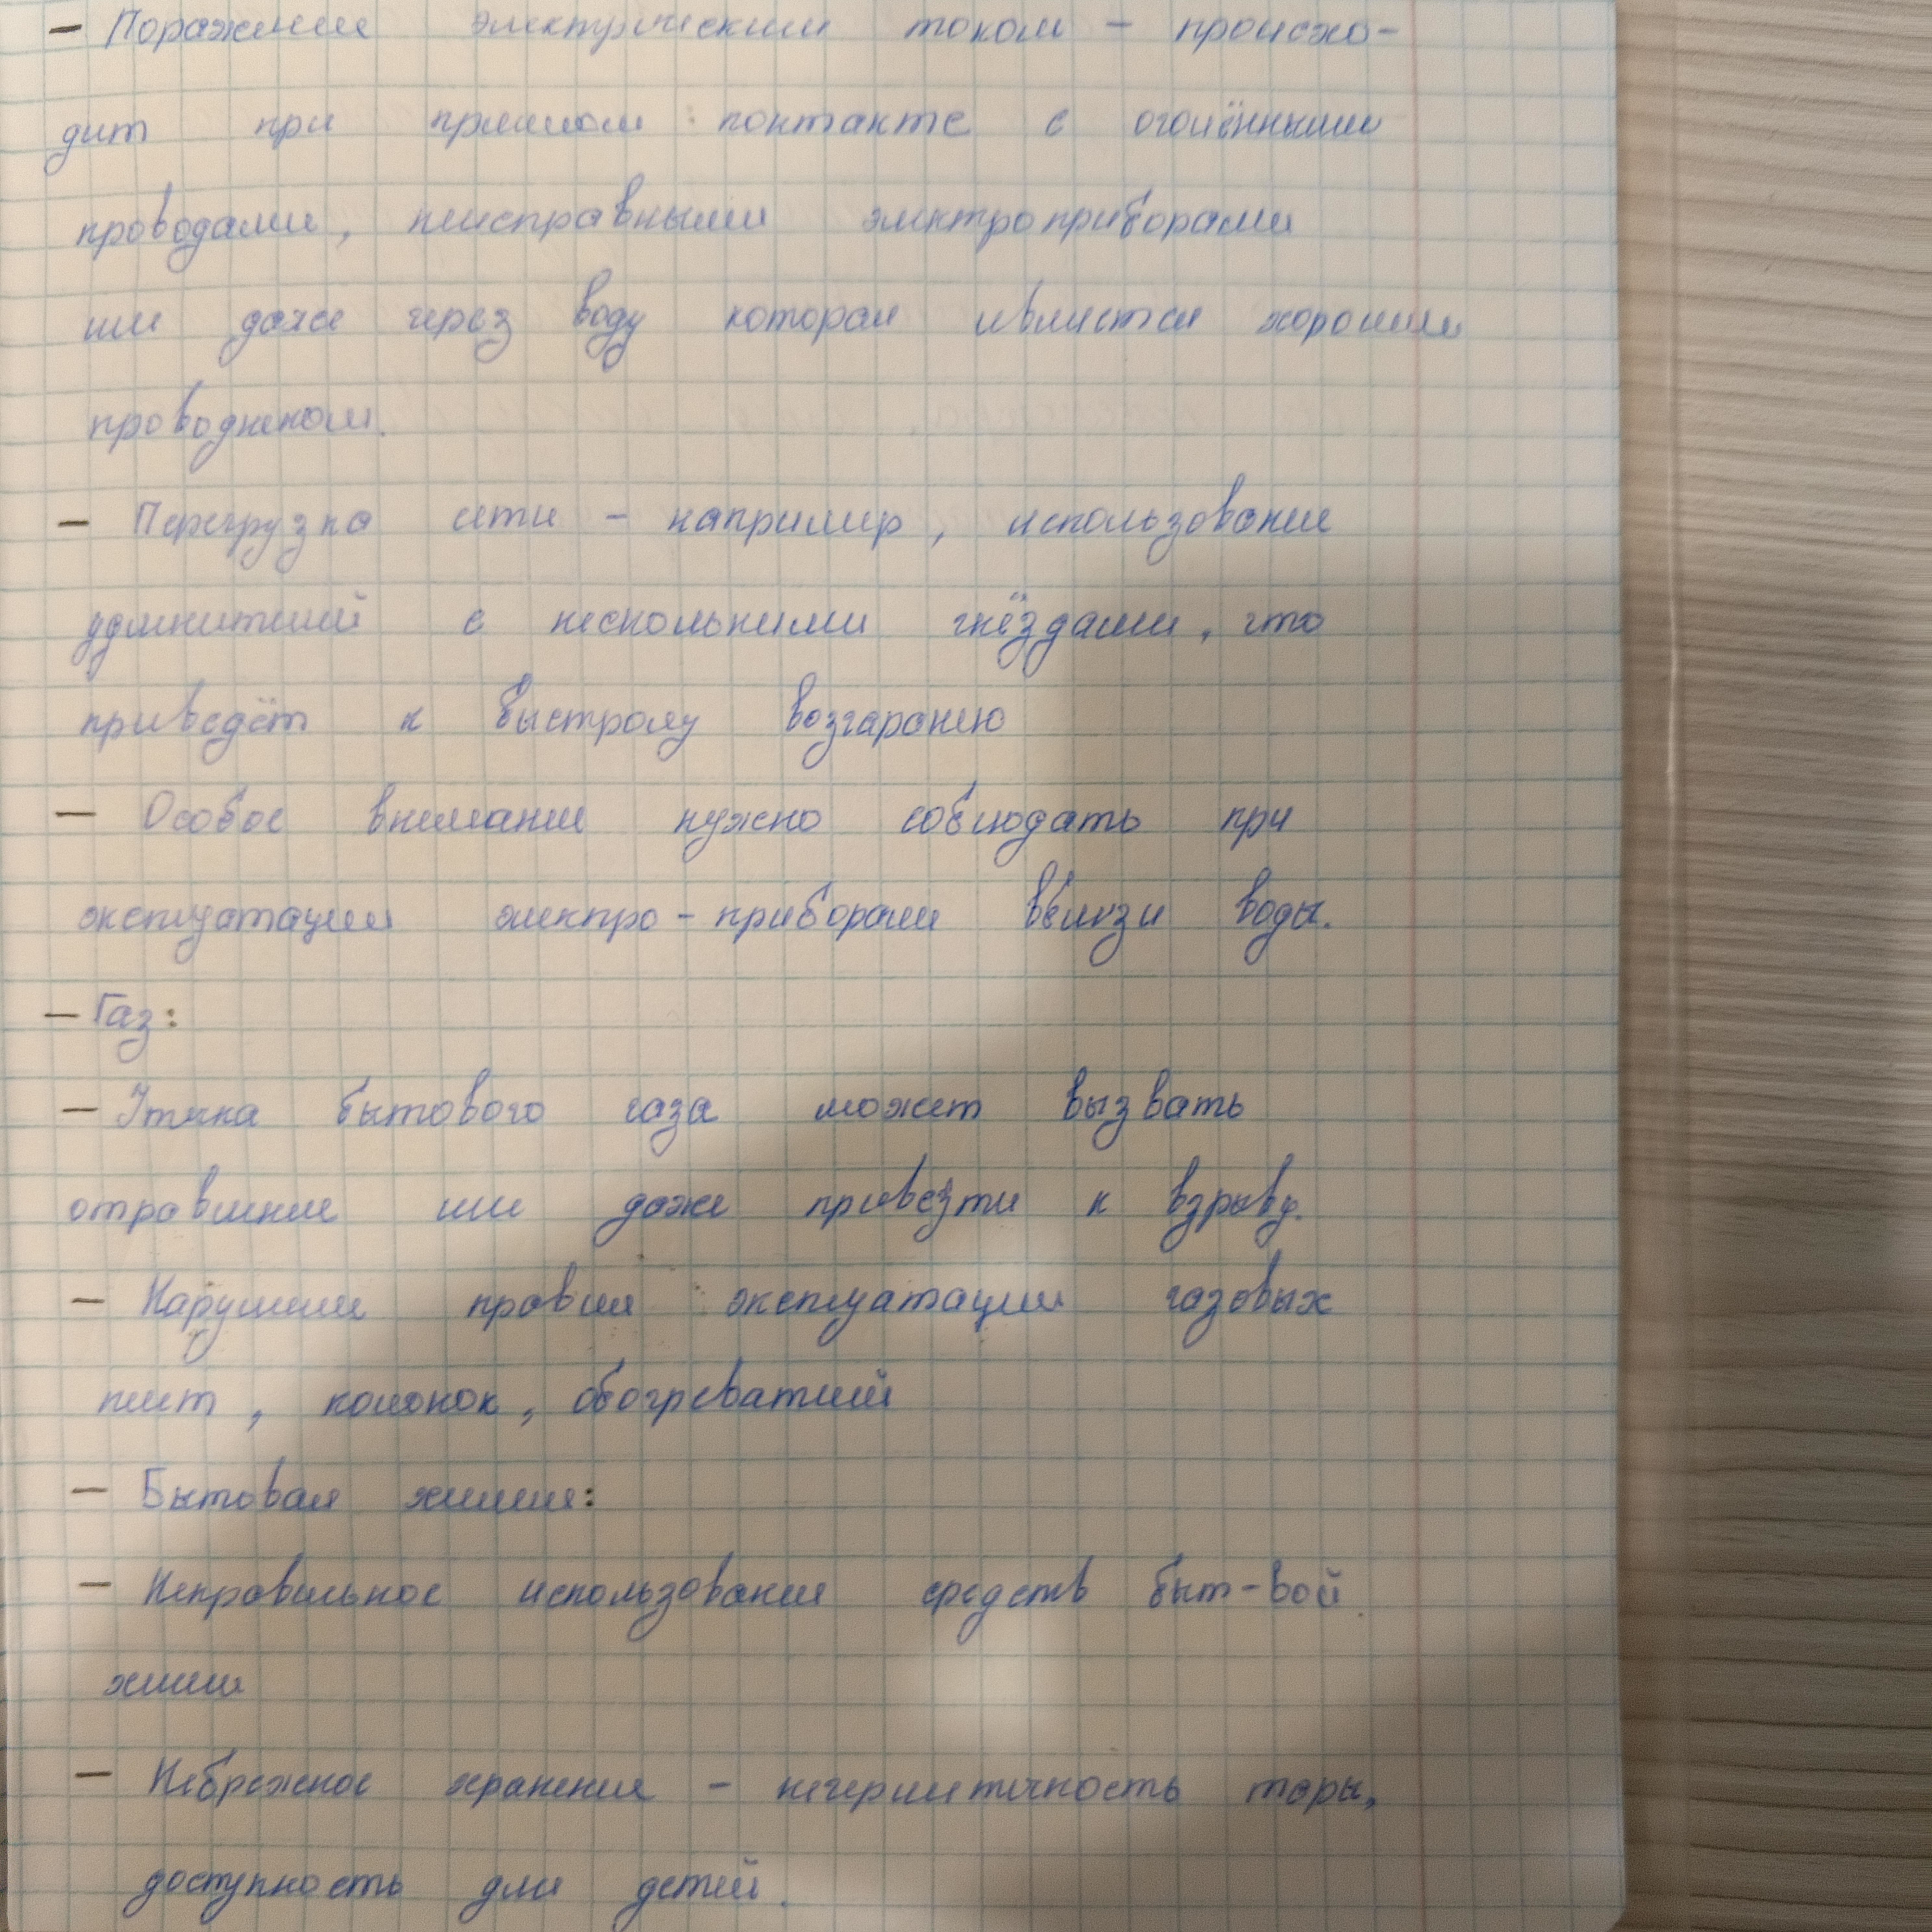 – Поражение электрическим током – происхо-
дит при прямом контакте с оголёнными
проводами, неисправными электроприборами
или даже через воду которая является хорошим
проводником.
– Перегрузка сети – например, использование
удлинителей с несколькими гнёздами, что
приведёт к быстрому возгаранию
– Особое внимание нужно соблюдать при
эксплуатации электро-приборами вблизи воды.
– Газ:
– Утечка бытового газа может вызвать
отравление или даже привезти к взрыву.
– Нарушение правил эксплуатации газовых
плит, колонок, обогревателей
– Бытовая химия:
– Неправильное использование средств быт-вой
химии
– Небрежное хранение – негерметичность тары,
доступность для детей.